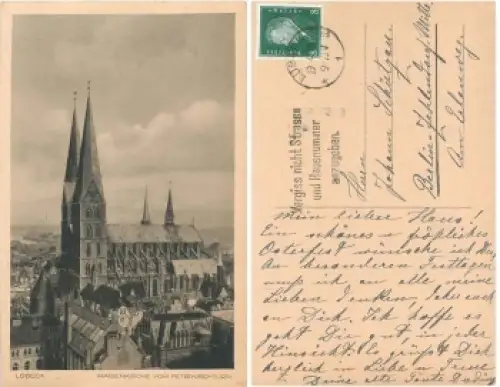 LÜBECK
MARIENKIRCHE VOM PETRIKIRCHTURM
8
8
Vergiss nicht Strasse
und Hausnummer
anzugeben.
Herrn
Johann
Berlin-Zehlendorf-Mitte
Am
Mein lieber Hans!
Ein schönes u fröhliches
Osterfest wünsche ich Dir.
An besonderen Festtagen
muß ich an alle meine
Lieben denken,
an Dich. Ich hoffe es
geht Dir gut, in jeder
Hinsicht. Es grüßt Dich
herzlich in Liebe u Treue
Deine alte Tante